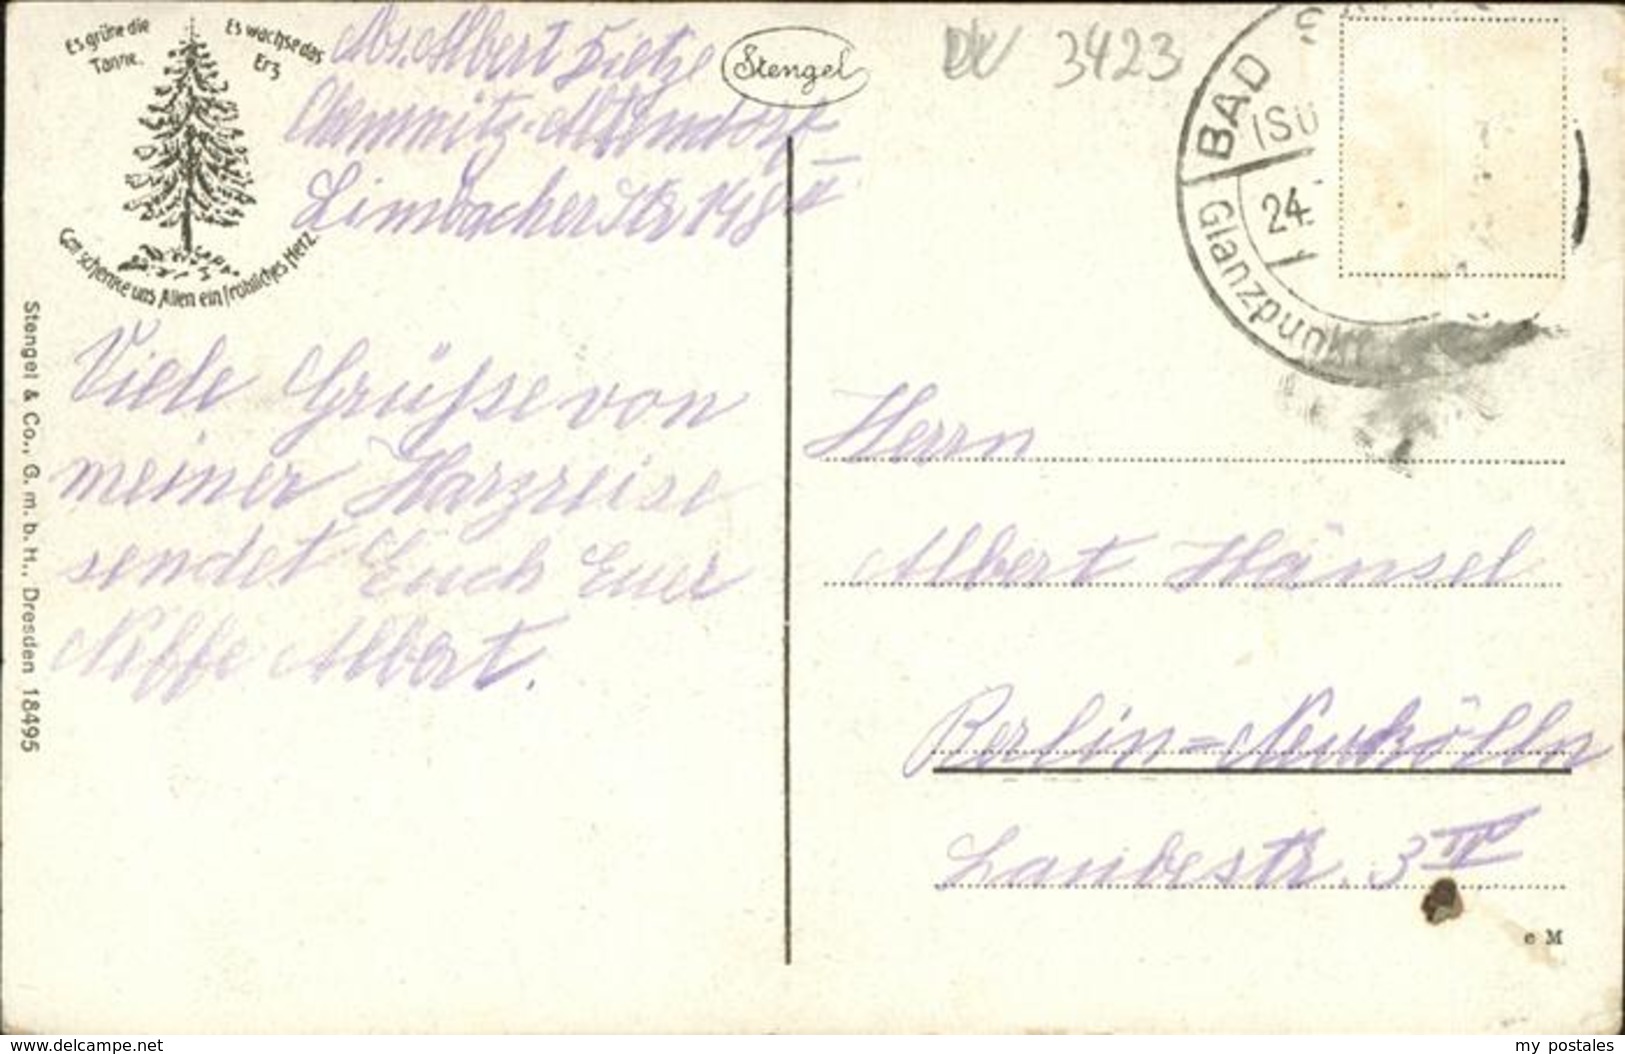 Es grüne die
Tanne.
Es wachse das
Erz
Gott schenke uns Allen ein fröhliches Herz.
Abs. Albert Dietze
Chemnitz-Altendorf
Limbacher Str 148 II
Stengel
3423
BAD
(SÜ
24.
Glanzpunkt
Viele Grüsse von
meiner Harzreise
sendet Euch Euer
Neffe Albert.
Herrn
Albert Hänsel
Berlin=Neukölln
Laubestr. 3 IV
Stengel & Co., G. m. b. H., Dresden 18495
c M
delcampe.net
my_postales